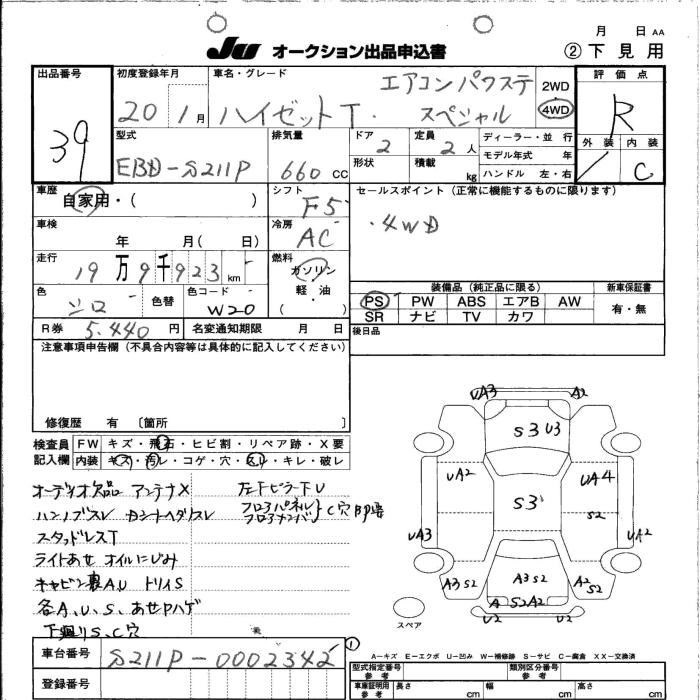 月 日 AA
JU オークション出品申込書 ②下見用
出品番号 39
初度登録年月 20年 1月
車名・グレード ハイゼットT. エアコンパワステ スペシャル
2WD 4WD
評価点 R
外装 内装 C
型式 EBD-S211P
排気量 660 CC
ドア 2
定員 2人
形状
積載 kg
ディーラー・並行
モデル年式 年
ハンドル 左・右
車歴 自家用・( )
シフト F5
セールスポイント(正常に機能するものに限ります)
・4WD
車検 年 月( 日)
冷房 AC
走行 19万9千923km
燃料 ガソリン 軽・油 ( )
色 シロ 色替 色コード W20
装備品(純正品に限る) 新車保証書
PS PW ABS エアB AW 有・無
SR ナビ TV カワ
R券 5.440円 名変通知期限 月 日
後日品
注意事項申告欄(不具合内容等は具体的に記入してください)
修復歴 有 〔箇所 〕
検査員記入欄 FW キズ・飛石・ヒビ割・リペア跡・X要
内装 キズ・汚レ・コゲ・穴・スレ・キレ・破レ
オーディオ欠品 アンテナX
左下ピラー下U
ハンドルスレ
フロアパネル フロアメンバ C穴
スタッドレスT
ライトあせ オイルにじみ
キャビン裏A.U トリイS
各A、U、S、あせPハゲ
下廻りS、C穴
UA3 A2
S3 U3
UA2 UA4
S3
S2
UA3 UA2
A3 S2 A3 S2 A2 S2
A S2 A2
U2 U2
スペア
車台番号 S211P-0002342
登録番号
①
A−キズ E−エクボ U−凹み W−補修跡 S−サビ C−腐食 XX−交換済
型式指定番号 参考 類別区分番号 参考
車庫証明用 参考 長さ cm 幅 cm 高さ cm